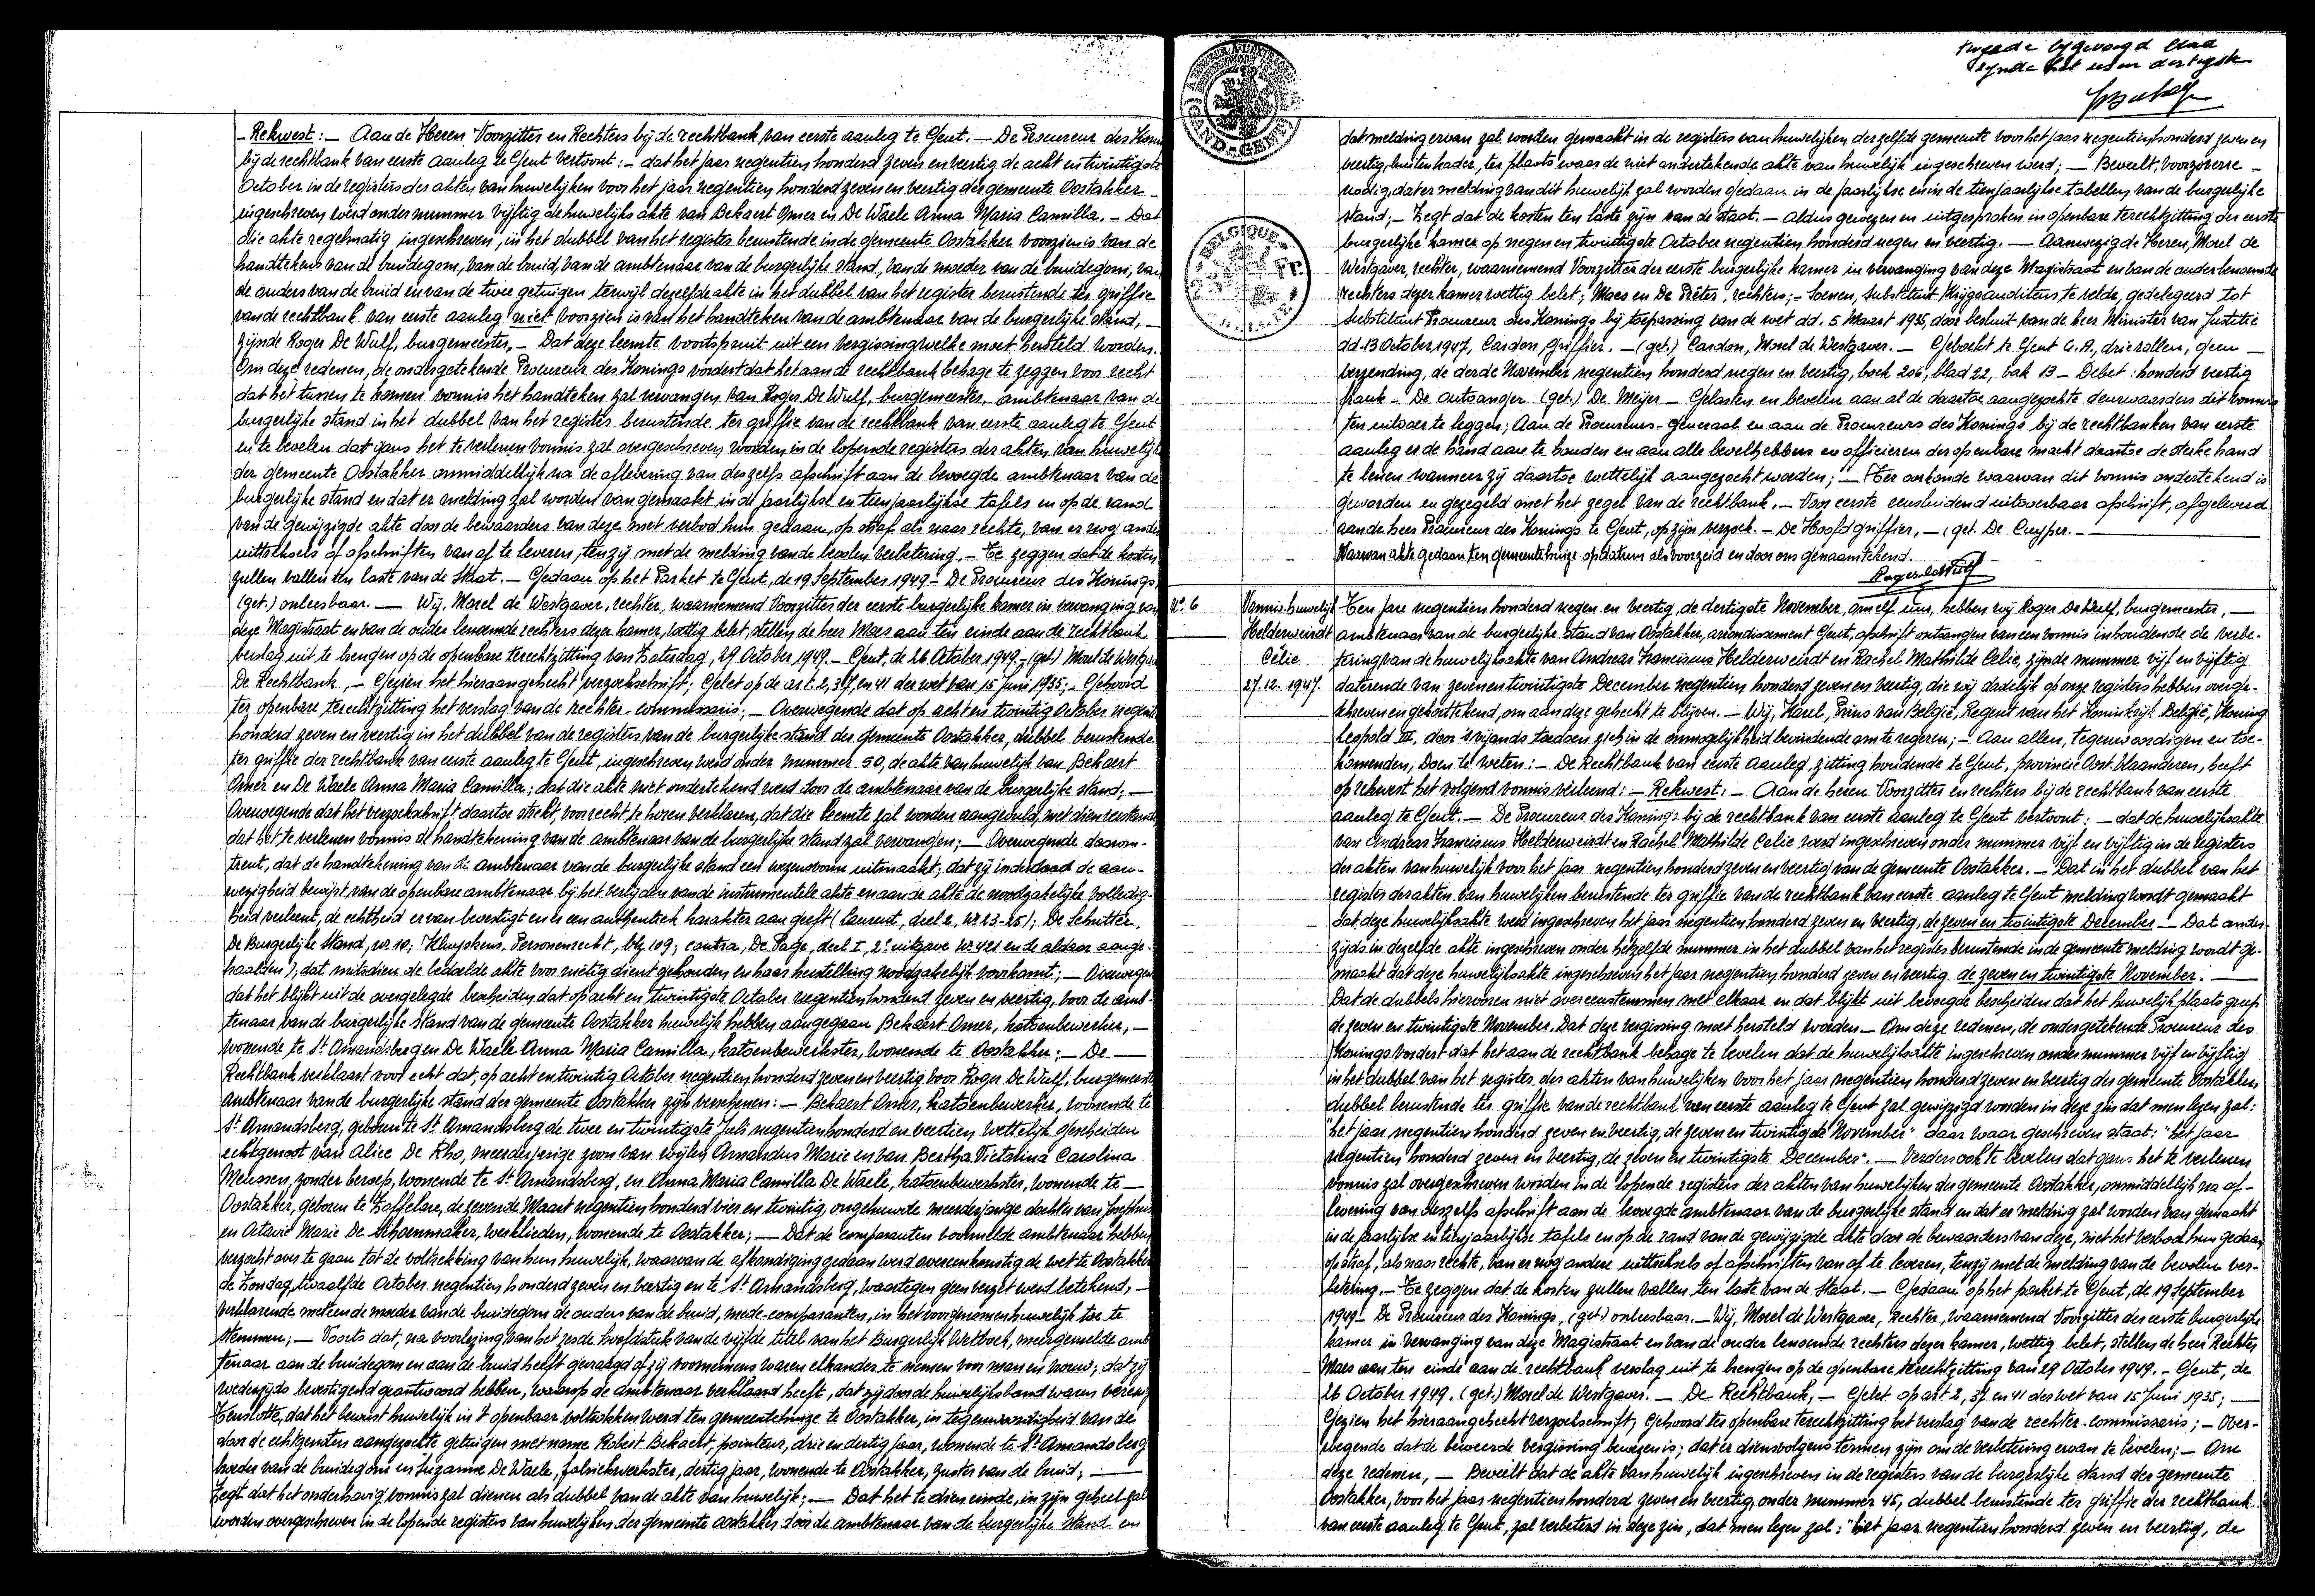 - Rekwest: - Aan de Heren Voorzitter en Rechters bij de rechtbank van eerste aanleg te Gent. - De Procureur des Konings
bij de rechtbank van eerste aanleg te Gent vertoont: - dat het jaar negentien honderd zeven en veertig de acht en twintigste
October in de registers der akten van huwelijken voor het jaar negentien honderd zeven en veertig der gemeente Oostakker -
ingeschreven werd onder nummer vijftig de huwelijks akte van Bekaert Omer en De Waele Anna Maria Camilla. - Dat
die akte regelmatig ingeschreven, in het dubbel van het register berustende in de gemeente Oostakker voorzien is van de
handtekens van de bruidegom, van de bruid, van de ambtenaar van de burgerlijke stand, van de moeder van de bruidegom, van
de ouders van de bruid en van de twee getuigen terwijl dezelfde akte in het dubbel van het register berustende ter griffie
van de rechtbank van eerste aanleg niet voorzien is van het handteken van de ambtenaar van de burgerlijke stand, -
zijnde Roger De Wulf, burgemeester. - Dat deze leemte voortspruit uit een vergissing welke moet hersteld worden.
Om deze redenen, de ondergetekende Procureur des Konings vordert dat het aan de rechtbank behage te zeggen voor recht
dat het tussen te komen vonnis het handteken zal vervangen van Roger De Wulf, burgemeester, ambtenaar van de
burgerlijke stand in het dubbel van het register berustende ter griffie van de rechtbank van eerste aanleg te Gent
en te bevelen dat gans het te verlenen vonnis zal overgeschreven worden in de lopende registers der akten van huwelijk
der gemeente Oostakker onmiddellijk na de aflevering van deszelfs afschrift aan de bevoegde ambtenaar van de
burgerlijke stand en dat er melding zal worden van gemaakt in de jaarlijkse en tienjaarlijkse tafels en op de rand
van de gewijzigde akte door de bewaarders van deze met verbod hun gedaan, op straf als naar rechte, van er nog andere
uittreksels of afschriften van af te leveren, tenzij met de melding van de bevolen verbetering. - Te zeggen dat de kosten
zullen vallen ten laste van de Staat. - Gedaan op het Parket te Gent, de 19 September 1949 - De Procureur des Konings
(get.) onleesbaar. - Wij, Morel de Westgaver, rechter, waarnemend Voorzitter der eerste burgerlijke kamer in vervanging van
deze Magistraat en van de ouder benoemde rechters dezer kamer, wettig belet, stellen de heer Maes aan ten einde aan de rechtbank
verslag uit te brengen op de openbare terechtzitting van Zaterdag, 29 October 1949. - Gent, de 26 October 1949 - (get.) Morel de Westgaver
De Rechtbank, - Gezien het hieraangehecht verzoekschrift; Gelet op de art. 2, 37, en 41 der wet van 15 Juni 1935; - Gehoord
ter openbare terechtzitting het verslag van de rechter-commissaris; - Overwegende dat op acht en twintig October negentien
honderd zeven en veertig in het dubbel van de registers van de burgerlijke stand der gemeente Oostakker, dubbel berustende
ter griffie der rechtbank van eerste aanleg te Gent, ingeschreven werd onder nummer 50, de akte van huwelijk van Bekaert
Omer en De Waele Anna Maria Camilla; dat die akte niet ondertekend werd door de ambtenaar van de burgerlijke stand; -
Overwegende dat het verzoekschrift daartoe strekt, voor recht te horen verklaren, dat die leemte zal worden aangevuld, met dien verstande
dat het te verlenen vonnis de handtekening van de ambtenaar van de burgerlijke stand zal vervangen; - Overwegende daarom-
trent, dat de handtekening van de ambtenaar van de burgerlijke stand een wezensvorm uitmaakt; dat zij inderdaad de aan-
wezigheid bewijst van de openbare ambtenaar bij het verlijden van de instrumentele akte en aan de akte de noodzakelijke volledig-
heid verleent, de echtheid ervan bevestigt en ze een authentiek karakter aan geeft (Laurent, deel 2, nr 23-25); De Schutter,
De Burgerlijke Stand, nr 10; Kluyskens, Personenrecht, blz 109; contra, De Page, deel I, 2e uitgave nr 421 en de aldaar aange-
haalden), dat mitsdien de bedoelde akte voor nietig dient gehouden en haar herstelling noodzakelijk voorkomt; - Overwegende
dat het blijkt uit de overgelegde bescheiden dat op acht en twintigste October negentien honderd zeven en veertig, voor de amb-
tenaar van de burgerlijke stand van de gemeente Oostakker huwelijk hebben aangegaan Bekaert Omer, katoenbewerker, -
wonende te St Amandsberg en De Waele Anna Maria Camilla, katoenbewerkster, wonende te Oostakker; - De -
Rechtbank verklaart voor recht dat, op acht en twintig October negentien honderd zeven en veertig voor Roger De Wulf, burgemeester
ambtenaar van de burgerlijke stand der gemeente Oostakker zijn verschenen: - Bekaert Omer, katoenbewerker, wonende te
St Amandsberg, geboren te St Amandsberg de twee en twintigste Juli negentien honderd en veertien wettelijk gescheiden
echtgenoot van Alice De Rho, meerderjarige zoon van wijlen Amandus Marie en van Bertha Victorina Carolina
Meiresen, zonder beroep, wonende te St Amandsberg, en Anna Maria Camilla De Waele, katoenbewerkster, wonende te -
Oostakker, geboren te Zaffelare, de zevende Maart negentien honderd vier en twintig, ongehuwde meerderjarige dochter van Josephus
en Octavie Marie De Schoenmaker, werklieden, wonende te Oostakker; - Dat de comparanten voormelde ambtenaar hebben
verzocht over te gaan tot de voltrekking van hun huwelijk, waarvan de afkondiging gedaan werd overeenkomstig de wet te Oostakker
de Zondag, twaalfde October negentien honderd zeven en veertig en te St Amandsberg, waartegen geen verzet werd betekend, -
verklarende meteen de moeder van de bruidegom de ouders van de bruid, mede-comparanten, in het voorgenomen huwelijk toe te
stemmen; - Voorts dat, na voorlezing van het zesde hoofdstuk van de vijfde titel van het Burgerlijk Wetboek, meergemelde amb
tenaar aan de bruidegom en aan de bruid heeft gevraagd of zij voornemens waren elkander te nemen voor man en vrouw; dat zij
wederzijds bevestigend geantwoord hebben, waarop de ambtenaar verklaard heeft, dat zij door de huwelijksband waren verenigd
Tenslotte, dat het bewust huwelijk in 't openbaar voltrokken werd ten gemeentehuize te Oostakker, in tegenwoordigheid van de
door de echtgenoten aangezochte getuigen met name Robert Bekaert, pointeur, drie en dertig jaar, wonende te St Amandsberg
broeder van de bruidegom en Suzanne De Waele, fabriekwerkster, dertig jaar, wonende te Oostakker, zuster van de bruid; -
Zegt dat het onderhavig vonnis zal dienen als dubbel van de akte van huwelijk; - Dat het te dien einde, in zijn geheel zal
worden overgeschreven in de lopende registers van huwelijken der gemeente Oostakker door de ambtenaar van de burgerlijke stand en
tweede bijgevoegd blad
zijnde het een en dertigste
GAND-GENT
BELGIQUE
dat melding ervan zal worden gemaakt in de registers van huwelijken derzelfde gemeente voor het jaar negentien honderd zeven en
veertig, buiten kader, ter plaats waar de niet ondertekende akte van huwelijk ingeschreven werd; - Beveelt, voorzoveel -
nodig, dat er melding van dit huwelijk zal worden gedaan in de jaarlijkse en in de tienjaarlijkse tabellen van de burgerlijke
stand; - Zegt dat de kosten ten laste zijn van de staat. - Aldus gewezen en uitgesproken in openbare terechtzitting der eerste
burgerlijke kamer op negen en twintigste October negentien honderd negen en veertig. - Aanwezig de Heren, Morel de
Westgaver, rechter, waarnemend Voorzitter der eerste burgerlijke kamer in vervanging van deze Magistraat en van de ouder benoemde
rechters dezer kamer wettig belet; Maes en De Prêter, rechters; - Soenen, Substituut Krijgsauditeur te velde, gedelegeerd tot
Substituut Procureur des Konings bij toepassing van de wet dd. 5 Maart 1935, door besluit van de heer Minister van Justitie
dd. 13 October 1947, Cardon, griffier. - (get.) Cardon, Morel de Westgaver. - Geboekt te Gent G.A., drie rollen, geen -
verzending, de derde November negentien honderd negen en veertig, boek 206, blad 22, vak 13 - Debet: honderd veertig
frank - De ontvanger (get.) De Meijer - Gelasten en bevelen aan al de daartoe aangezochte deurwaarders dit vonnis
ten uitvoer te leggen; Aan de Procureurs-generaal en aan de Procureurs des Konings bij de rechtbanken van eerste
aanleg er de hand aan te houden en aan alle bevelhebbers en officieren der openbare macht daartoe de sterke hand
te lenen wanneer zij daartoe wettelijk aangezocht worden; - Ter oorkonde waarvan dit vonnis ondertekend is
geworden en gezegeld met het zegel van de rechtbank. - Voor eerste eensluidend uitvoerbaar afschrift, afgeleverd
aan de heer Procureur des Konings te Gent, op zijn verzoek. - De Hoofdgriffier, - (get. De Cuyper. -
Waarvan akte gedaan ten gemeentehuize op datum als voorzeid en door ons genaamtekend.
Roger De Wulf
No. 6
Vonnis huwelijk
Helderweirdt
Célie
27.12.1947.
Ten jare negentien honderd negen en veertig, de dertigste November, om elf uur, hebben wij Roger De Wulf, burgemeester, -
ambtenaar van de burgerlijke stand van Oostakker, arrondissement Gent, afschrift ontvangen van een vonnis inhoudende de verbe-
tering van de huwelijksakte van Andreas Franciscus Helderweirdt en Rachel Mathilde Celie, zijnde nummer vijf en vijftig
daterende van zeven en twintigste December negentien honderd zeven en veertig, die wij dadelijk op onze registers hebben overge-
schreven en gehandtekend, om aan deze gehecht te blijven. - Wij, Karel, Prins van België, Regent van het Koninkrijk België, Koning
Leopold III, door 's vijands toedoen zich in de onmogelijkheid bevindende om te regeren; - Aan allen, tegenwoordigen en toe-
komenden, Doen te weten: - De Rechtbank van eerste aanleg, zitting houdende te Gent, provincie Oost Vlaanderen, heeft
op rekwest het volgend vonnis verleend: - Rekwest: - Aan de heren Voorzitter en rechters bij de rechtbank van eerste
aanleg te Gent. - De Procureur des Konings bij de rechtbank van eerste aanleg te Gent vertoont: - dat de huwelijksakte
van Andreas Franciscus Helderweirdt en Rachel Mathilde Celie werd ingeschreven onder nummer vijf en vijftig in de registers
der akten van huwelijk voor het jaar negentien honderd zeven en veertig van de gemeente Oostakker. - Dat in het dubbel van het
register der akten van huwelijken berustende ter griffie van de rechtbank van eerste aanleg te Gent melding wordt gemaakt
dat deze huwelijksakte werd ingeschreven het jaar negentien honderd zeven en veertig, de zeven en twintigste December - Dat ander-
zijds in dezelfde akte ingeschreven onder hetzelfde nummer in het dubbel van het register berustende in de gemeente melding wordt ge-
maakt dat deze huwelijksakte ingeschreven het jaar negentien honderd zeven en veertig de zeven en twintigste November. -
Dat de dubbels hiervoren niet overeenstemmen met elkaar en dat blijkt uit bevoegde bescheiden dat het huwelijk plaats greep
de zeven en twintigste November. Dat deze vergissing moet hersteld worden. - Om deze redenen, de ondergetekende Procureur des
Konings vordert dat het aan de rechtbank behage te bevelen dat de huwelijksakte ingeschreven onder nummer vijf en vijftig
in het dubbel van het register der akten van huwelijken voor het jaar negentien honderd zeven en veertig der gemeente Oostakker
dubbel berustende ter griffie van de rechtbank van eerste aanleg te Gent zal gewijzigd worden in deze zin dat men lezen zal:
"het jaar negentien honderd zeven en veertig, de zeven en twintigste November" daar waar geschreven staat: "het jaar
negentien honderd zeven en veertig, de zeven en twintigste December". - Verders ook te bevelen dat gans het te verlenen
vonnis zal overgeschreven worden in de lopende registers der akten van huwelijken der gemeente Oostakker, onmiddellijk na af-
levering van deszelfs afschrift aan de bevoegde ambtenaar van de burgerlijke stand en dat er melding zal worden van gemaakt
in de jaarlijkse en tienjaarlijkse tafels en op de rand van de gewijzigde akte door de bewaarders van deze, met het verbod hun gedaan,
op straf, als naar rechte, van er nog andere uittreksels of afschriften van af te leveren, tenzij met de melding van de bevolen ver-
betering. - Te zeggen dat de kosten zullen vallen ten laste van de Staat. - Gedaan op het parket te Gent, de 19 September
1949 - De Procureur des Konings, (get.) onleesbaar. - Wij, Morel de Westgaver, Rechter, waarnemend Voorzitter der eerste burgerlijke
kamer in vervanging van deze Magistraat en van de ouder benoemde rechters dezer kamer, wettig belet, stellen de heer Rechter
Maes aan ten einde aan de rechtbank verslag uit te brengen op de openbare terechtzitting van 29 October 1949. - Gent, de
26 October 1949. (get.) Morel de Westgaver. - De Rechtbank, - Gelet op art 2, 37 en 41 der wet van 15 Juni 1935; -
Gezien het hieraangehecht verzoekschrift; Gehoord ter openbare terechtzitting het verslag van de rechter-commissaris; - Over-
wegende dat de beweerde vergissing bewezen is; dat er dienvolgens termen zijn om de verbetering ervan te bevelen; - Om
deze redenen, - Beveelt dat de akte van huwelijk ingeschreven in de registers van de burgerlijke stand der gemeente
Oostakker, voor het jaar negentien honderd zeven en veertig, onder nummer 45, dubbel berustende ter griffie der rechtbank
van eerste aanleg te Gent, zal verbeterd in deze zin, dat men lezen zal: "het jaar negentien honderd zeven en veertig, de